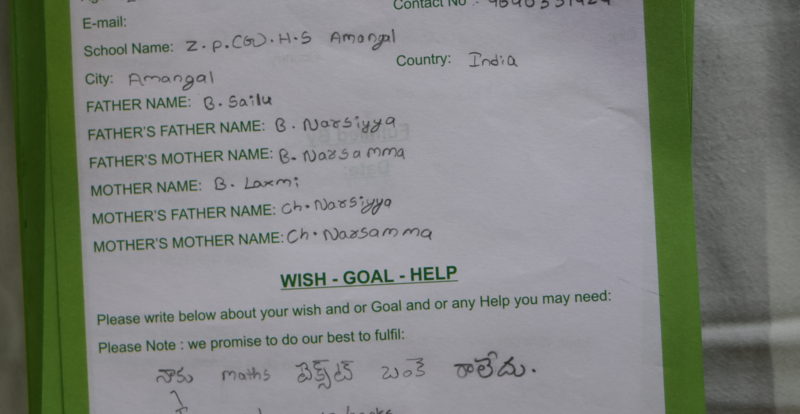 Contact No :
E-mail:
School Name: Z.P.(G).H.S Amangal
City: Amangal Country: India
FATHER NAME: B. Sailu
FATHER'S FATHER NAME: B. Narsiyya
FATHER'S MOTHER NAME: B. Narsamma
MOTHER NAME: B. Laxmi
MOTHER'S FATHER NAME: Ch. Narsiyya
MOTHER'S MOTHER NAME: Ch. Narsamma
WISH - GOAL - HELP
Please write below about your wish and or Goal and or any Help you may need:
Please Note : we promise to do our best to fulfil:
నాకు maths టెక్స్ట్ రాలేదు.